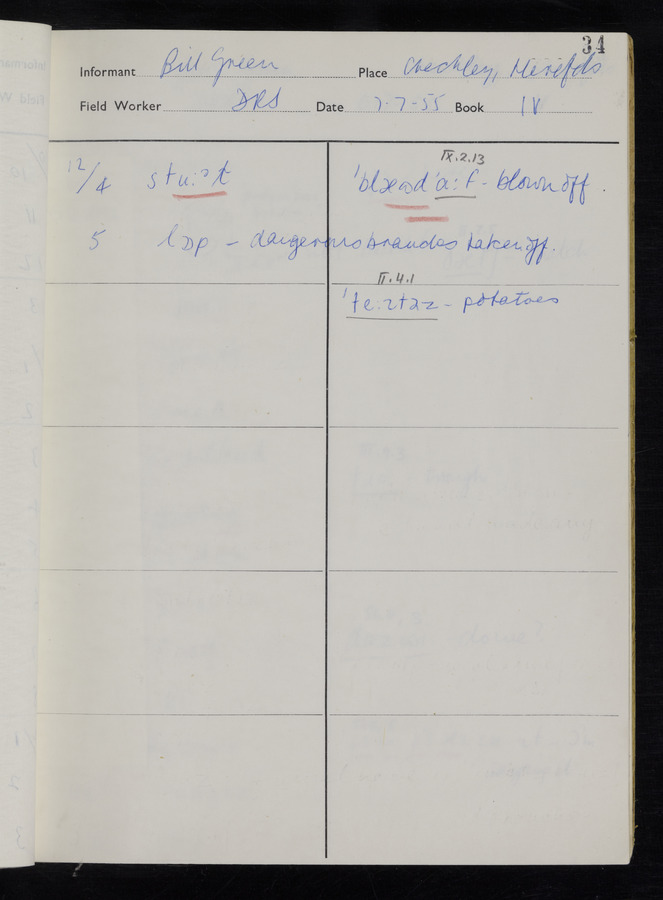 34
Informant Bill Green Place Checkley, Herefds
Field Worker DRS Date 7-7-55 Book IV
IX.2.13
12/4 stu:ət 'blɔəd 'a:f - blown off.
5 lɒp - dangerous branches taken off.
II.4.1
'te:ɪtəz - potatoes